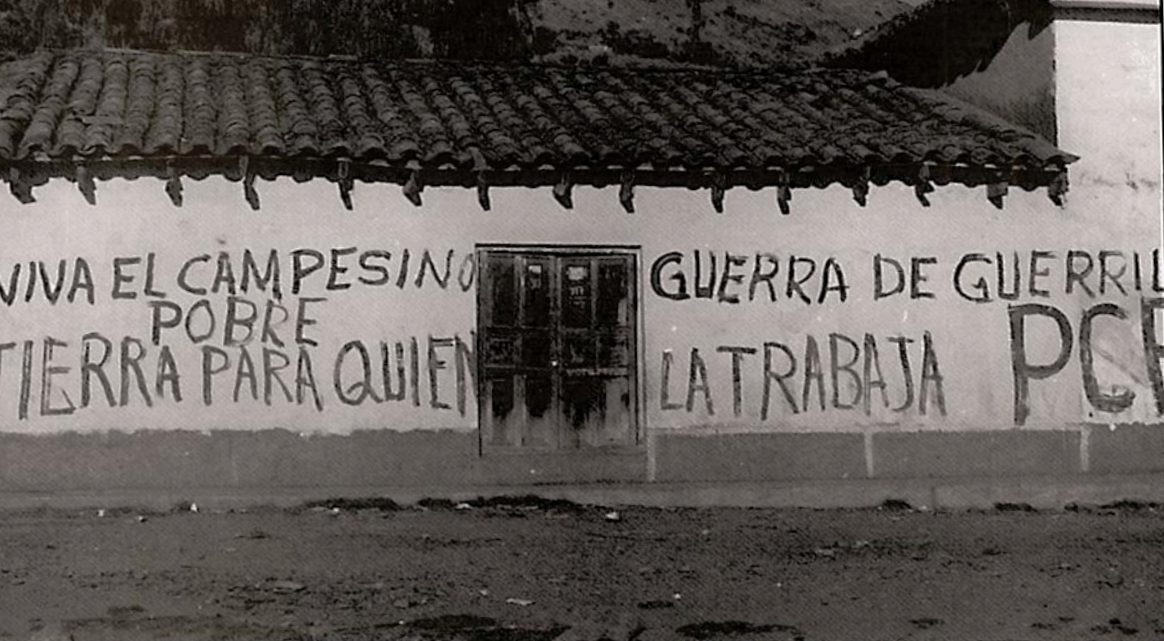 VIVA EL CAMPESINO
POBRE
TIERRA PARA QUIEN
GUERRA DE GUERRIL
LA TRABAJA
PCP